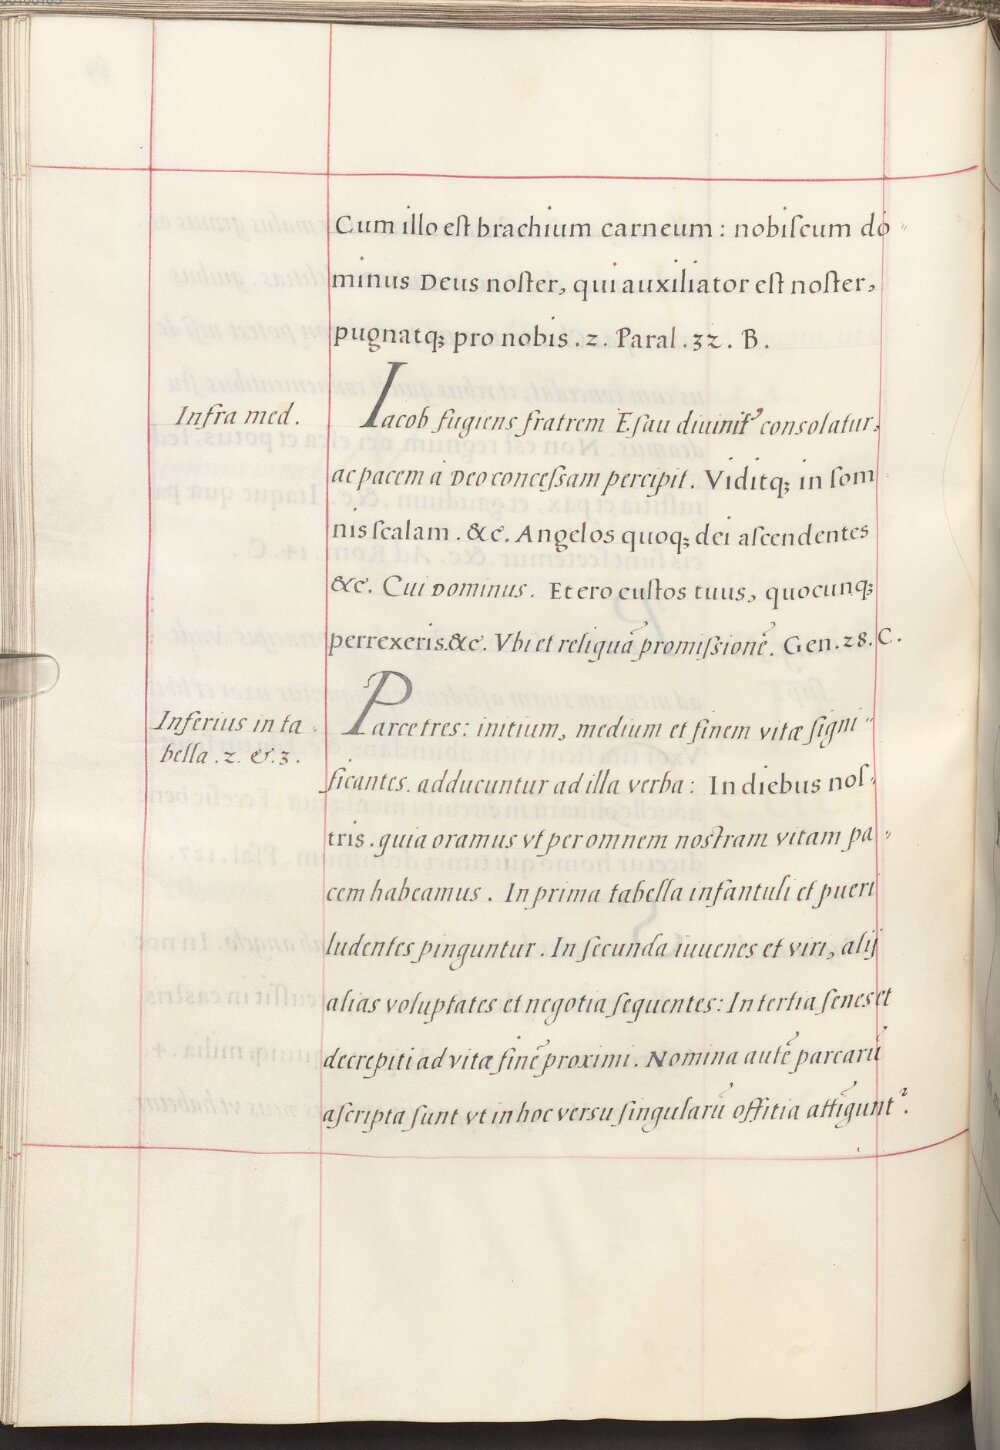 Cum illo est brachium carneum : nobiscum dó〃
minus Deus noster, qui auxiliator est noster,
pugnatq; pro nobis . 2 . Paral . 32 . B .
Infra med .
Iacob fugiens fratrem Esau diuinit᷒ consolatur,
ac pacem à Deo concessam percipit . Viditq; in som
nis scalam . &c . Angelos quoq; dei ascendentes
&c . Cui Dominus . Et ero custos tuus, quocunq;
perrexeris . &c . Vbi et reliquã promissionẽ . Gen . 28 . C .
Inferius in ta 〃
bella . 2 . & . 3 .
Parcę tres : initium, medium et finem vitæ signi〃
ficantes . adducuntur ad illa verba : In diebus nos〃
tris . quia oramus vt per omnem nostram vitam pa〃
cem habeamus . In prima tabella infantuli et pueri
ludentes pinguntur . In secunda iuuenes et viri, alij
alias voluptates et negotia sequentes : In tertia senes et
decrepiti ad vitæ finẽ proximi . Nomina autẽ parcarũ
ascripta sunt vt in hoc versu singularũ offitia attĩgunt᷒ .